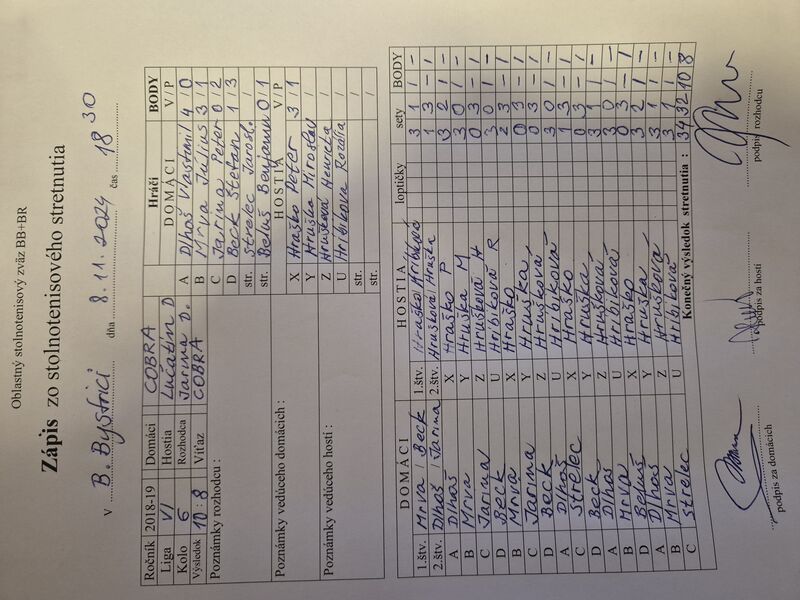 Oblastný stolnotenisový zväz BB+BR
Zápis zo stolnotenisového stretnutia
v B. Bystrici dňa 8.11.2024 čas 18 30
Ročník 2018-19 Domáci COBRA
Liga VI Hostia Lučatín D
Kolo 6 Rozhodca Jarina D.
Výsledok 10:8 Víťaz COBRA
Poznámky rozhodcu :
Poznámky vedúceho domácich :
Poznámky vedúceho hostí :
Hráči BODY
DOMÁCI V/P
A Dlhoš Vlastimil 4 0
B Mrva Július 3 1
C Jarina Peter 0 2
D Beck Štefan 1 3
str. Strelec Jarosl.
str. Beluš Benjamin 0 1
HOSTIA V/P
X Hraško Peter 3 1
Y Hruška Miroslav
Z Hrušková Henreta
U Hríbiková Rozália
str.
str.
DOMÁCI HOSTIA loptičky sety BODY
1.štv. Mrva / Beck 1.štv. Hraško / Hríbiková 3 1 1 -
2.štv. Dlhoš / Jarina 2.štv. Hrušková / Hruška 1 3 - 1
A Dlhoš X Hraško P 3 2 1 -
B Mrva Y Hruška M 3 0 1 -
C Jarina Z Hrušková H 0 3 - 1
D Beck U Hríbiková R 3 0 1 -
B Mrva X Hraško 2 3 - 1
C Jarina Y Hruška 0 3 - 1
D Beck Z Hrušková 0 3 - 1
A Dlhoš U Hríbiková 3 0 1 -
C Strelec X Hraško 1 3 - 1
D Beck Y Hruška 0 3 - 1
A Dlhoš Z Hrušková 3 1 1 -
B Mrva U Hríbiková 3 1 1 -
D Beluš X Hraško 0 3 - 1
A Dlhoš Y Hruška 3 2 1 -
B Mrva Z Hrušková 3 1 1 -
C Strelec U Hríbiková 3 1 1 -
Konečný výsledok stretnutia : 34 32 10 8
podpis za domácich podpis za hostí podpis rozhodcu